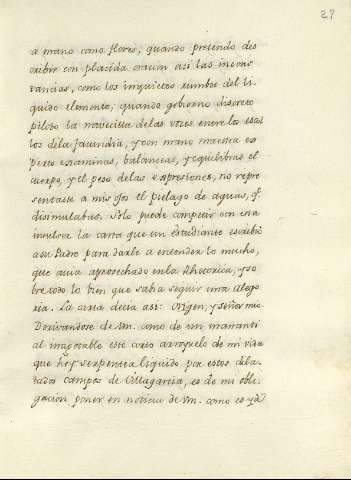 27
a mano como flores; quando pretendo des
cribir con placida oracion asi las incons
tancias, como los inquietos rumbos del li
quido elemento; quando gobierno discreto
piloto la navecilla de las voces entre los esco
llos dela facundia, y con mano maestra ex
perto examinas, balanceas, y equilibras el
cuerpo, y el peso de las expresiones, no repre
sentaste a mis ojos el pielago de aguas, q.
disimulabas. Solo puede competir con esta
la carta que un estudiante escribió
a su Padre para darle a entender lo mucho,
que avia aprovechado enla Rhetorica, y so
bre todo lo bien que sabia seguir una alego
ria. La carta decia asi: Origen, y señor mio
Derivandose de vm. como de un mananti
al inagotable este corto arroyuelo de mi vida
que hoy serpentea liquido por estos dila
tados campos de Villagarcia, es de mi obli
gacion poner en noticia de vm. como es ya